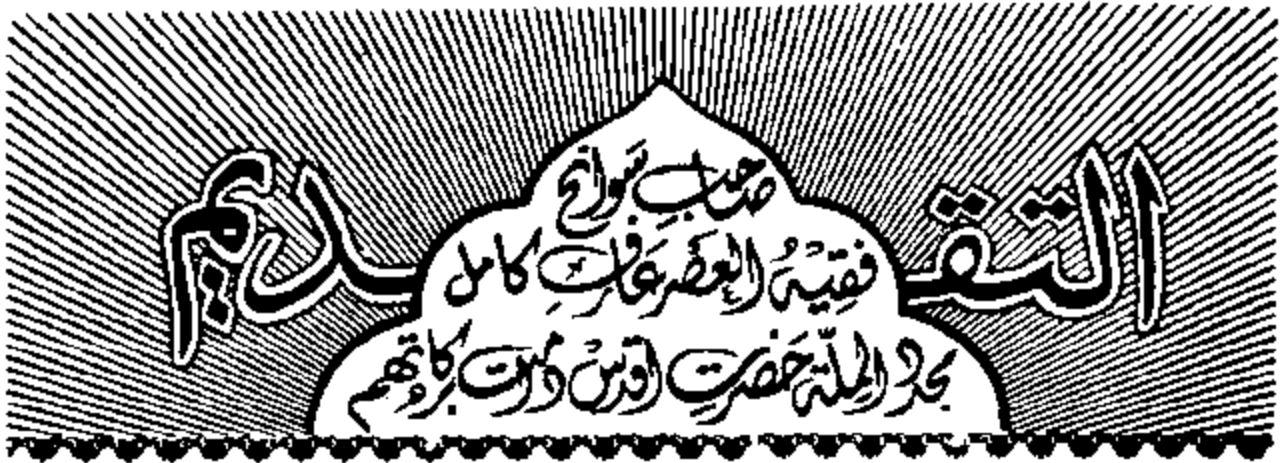 التقديم
صاحبِ سوانح
فقیہُ العصر عارفِ کامل
مجدد الملّۃ حضرتِ اقدس دامت برکاتهم